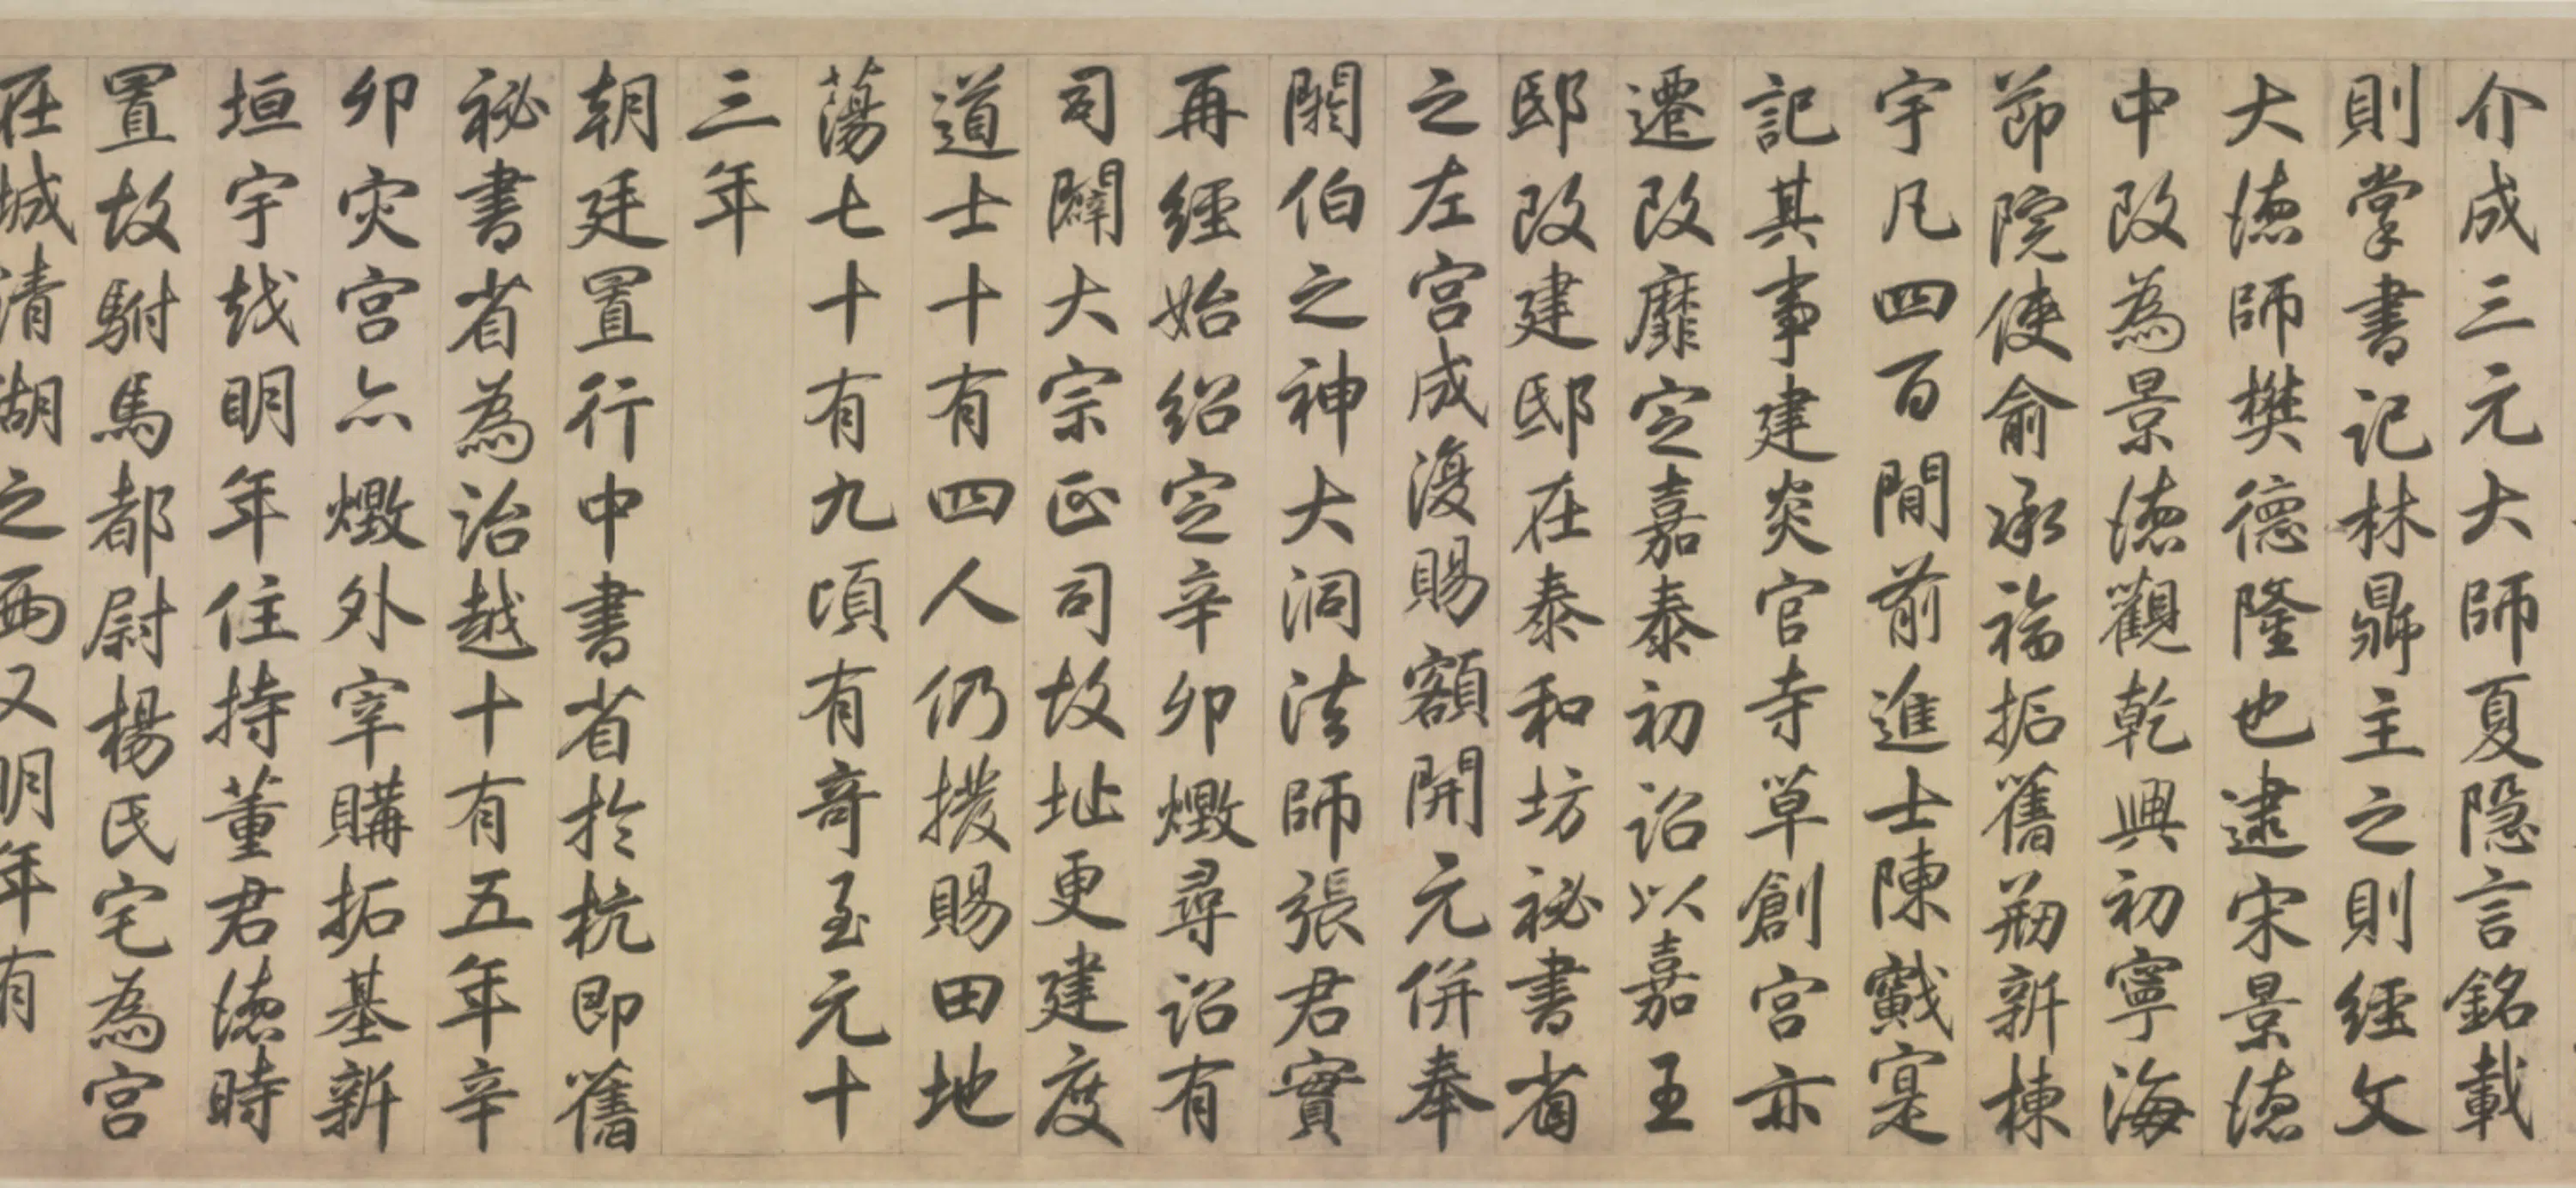 介成三元大師夏隐言銘載
則掌書記林鼎主之則經文
大德師樊德隆也逮宋景德
中改為景德觀乾興初寧海
節院使俞承福拓舊剏新棟
宇凡四百間前進士陳戩寔
記其事建炎官寺草創宮亦
遷改靡定嘉泰初詔以嘉王
邸改建邸在泰和坊秘書省
之左宮成復賜額開元併奉
閼伯之神大洞法師張君實
再經始紹定辛卯燬尋詔有
司闢大宗正司故址更建度
道士十有四人仍撥賜田地
蕩七十有九頃有奇至元十
三年
朝廷置行中書省於杭即舊
秘書省為治越十有五年辛
卯灾宮亦燬外宰購拓基新
垣宇越明年住持董君德時
置故駙馬都尉楊氏宅為宮
在城清湖之西又明年有